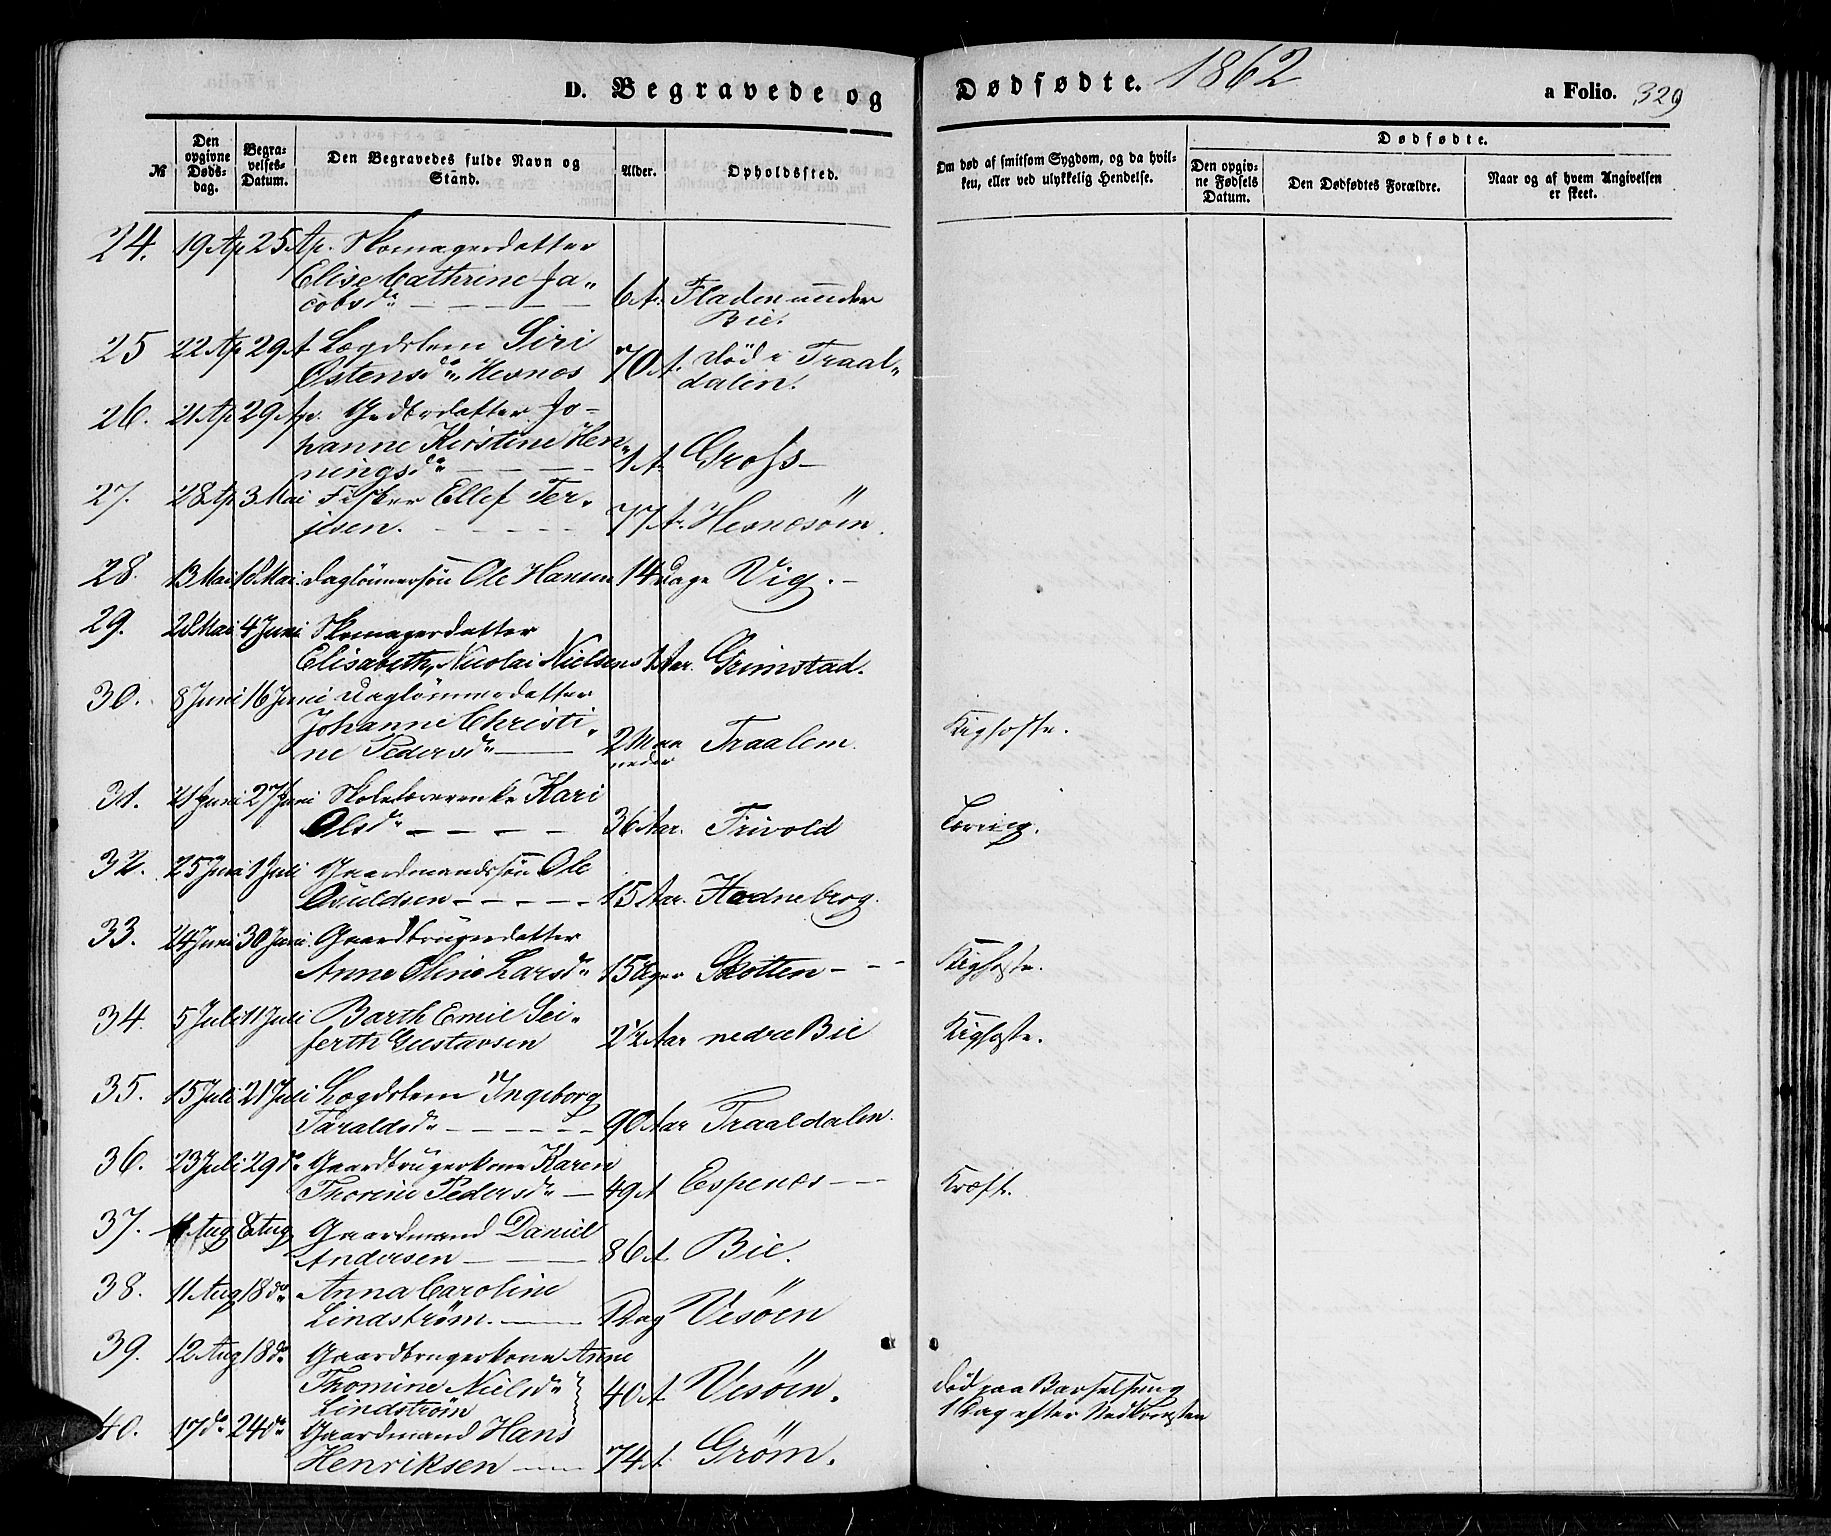 D. Begravede og Dødfødte. 1862 a Folio. 329
№
Den opgivne Døds-dag.
Begra-velses-Datum.
Den Begravedes fulde Navn og Stand.
Alder.
Opholdssted.
Om død af smitsom Sygdom, og da hvil-
ken, eller ved ulykkelig Hendelse.
Dødfødte.
Den opgiv-ne Fødsels Datum.
Den Dødfødtes Forældre.
Naar og af hvem Angivelsen er skeet.
24. 19 Ap 25 Ap. Skomagerdatter
Elise Cathrine Ja„
cobsdr 6 A. Fladen under
Bie.
25 22 Ap 29 A Lægdslem Siri
Østensdr, Hesnes 70 A. død i Traal„
dalen.
26. 21 Ap 29 Ap. datter Jo-
hanne Kirstine Hen„
ningsdr 1 A. Gross
27. 28 Ap 3 Mai Fisker Ellef Ter„
jesen. 77 A. Hesnesöen.
28. 13 Mai 16 Mai. Daglönnersön Ole Hansen 14 Dage Vig.
29. 28 Mai 4 Juni Skomagerdatter
Elisabeth, Nicolai Nielsens Aar. Grimstad.
30. 8 Juni 16 Juni Daglönnerdatter
Johanne Christi„
ne Pedersdr 2 Maa
neder Traalem. Kighoste.
31. 21 Juni 27 Juni Skolelærerenke Kari
Olsdr 36 Aar. Frivold
32. 25 Juni 1 Juli Gaardmandssön Ole
Osuldsen 15 Aar. Hodneborg.
33. 24 Juni 30 Juni. Gaardbrugerdatter
Anne Oline Larsdr 15 Uger Skotten Kighoste.
34. 5 Juli 11 Juli Barth Emil Sei„
ferth Gustavsen 2½ Aar nedre Bie Kighoste.
35. 15 Juli 21 Juli Lægdslem Ingeborg
Taraldsdr 90 Aar Traaldalen.
36. 23 Juli 29 do Gaardbrugerkone Karen
Thorine Pedersdr 49 A Espenes Kræft.
37. Aug 8 Aug Gaardmand Daniel
Andersen 86 A Bie.
38. 11 Aug 18 do Anna Caroline
Lindström. 1 Dag Vesöen
39. 12 Aug 18 do Gaardbrugerkone Anne
Thomine Nielsdr
Lindström 40 A Vesöen. død paa Barselseng
1 Dag efter Nedkomsten
40. 17 do 24 do Gaardmand Hans
Henriksen 74 A. Gröm.